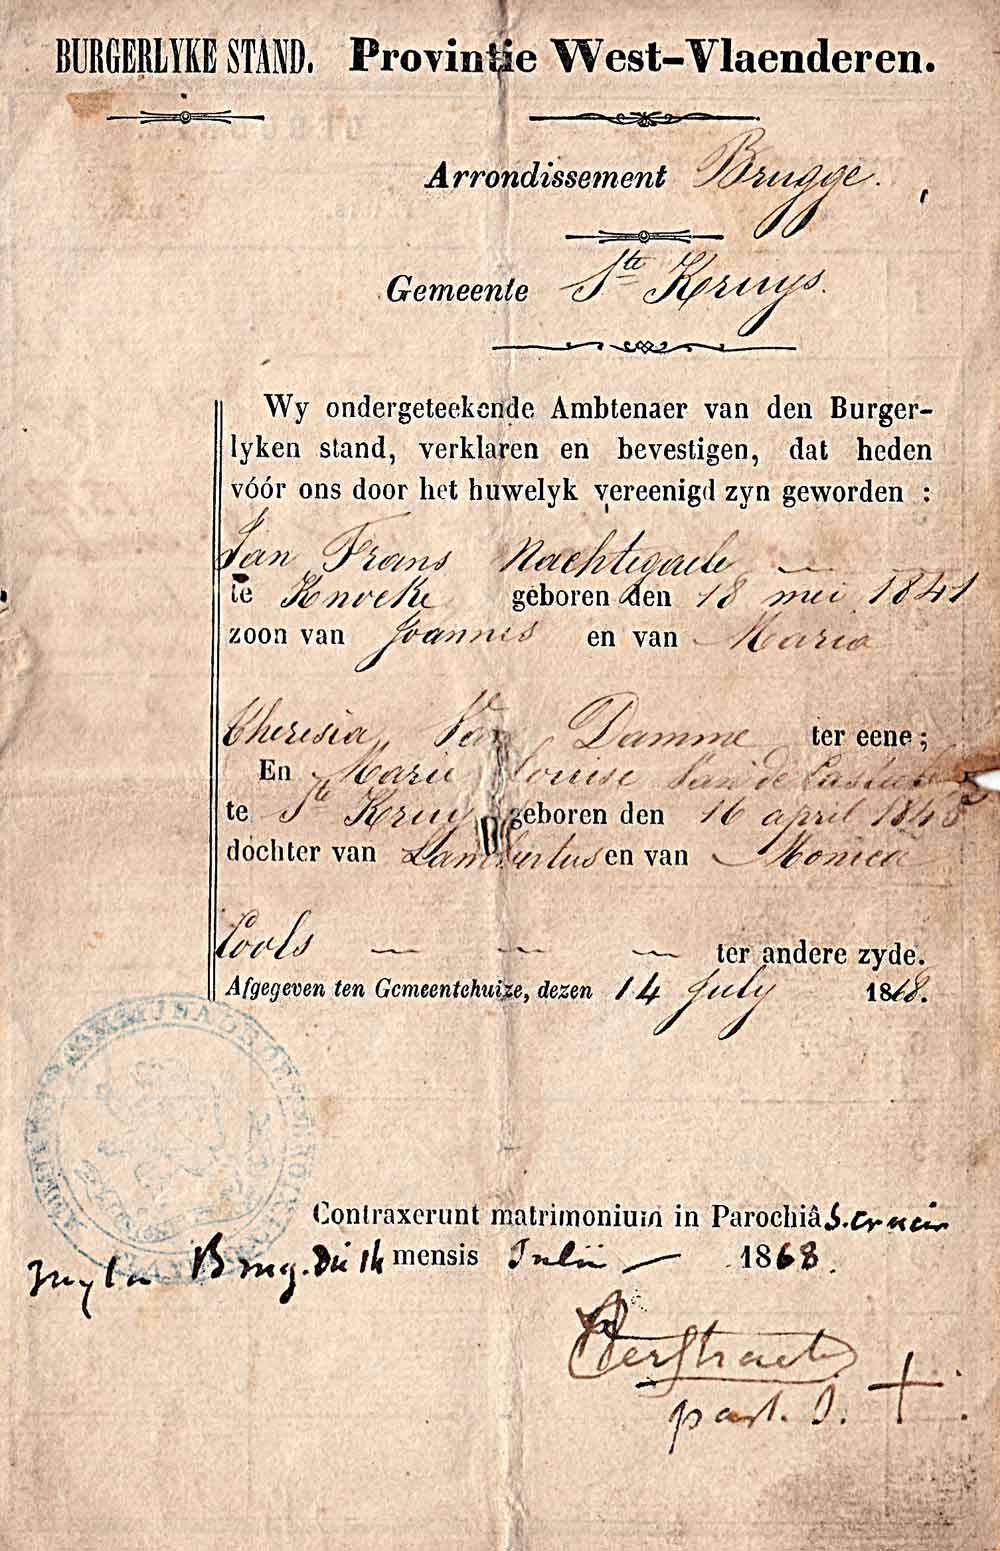 BURGERLYKE STAND. Provintie West-Vlaenderen.
Arrondissement Brugge.
Gemeente Ste Kruys.
Wy ondergeteekende Ambtenaer van den Burger-
lyken stand, verklaren en bevestigen, dat heden
vóór ons door het huwelyk vereenigd zyn geworden :
Jan Frans Nachtegaele
te Knocke geboren den 18 mei 1841
zoon van Joannes en van Maria
Theresia Van Damme ter eene ;
En Marie Louise Van de
te Ste Kruys geboren den 16 april
dochter van Lambertus en van Monica
Cools ter andere zyde.
Afgegeven ten Gemeentehuize, dezen 14 July 1868.
Contraxerunt matrimonium in Parochiâ S. Crucis
juxta Brug. die 14 mensis Julii 1868.
past. S. +